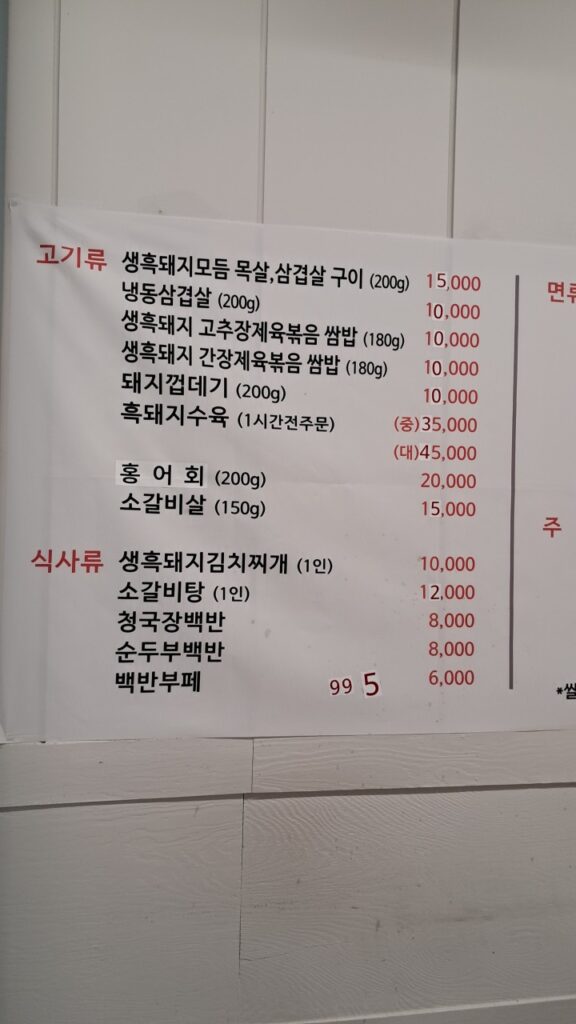 고기류 생흑돼지모듬 목살,삼겹살 구이 (200g) 15,000
냉동삼겹살 (200g) 10,000
생흑돼지 고추장제육볶음 쌈밥 (180g) 10,000
생흑돼지 간장제육볶음 쌈밥 (180g) 10,000
돼지껍데기 (200g) 10,000
흑돼지수육 (1시간전주문) (중)35,000
(대)45,000
홍 어 회 (200g) 20,000
소갈비살 (150g) 15,000
식사류 생흑돼지김치찌개 (1인) 10,000
소갈비탕 (1인) 12,000
청국장백반 8,000
순두부백반 8,000
백반부페 99 5 6,000
면류
주
*쌀